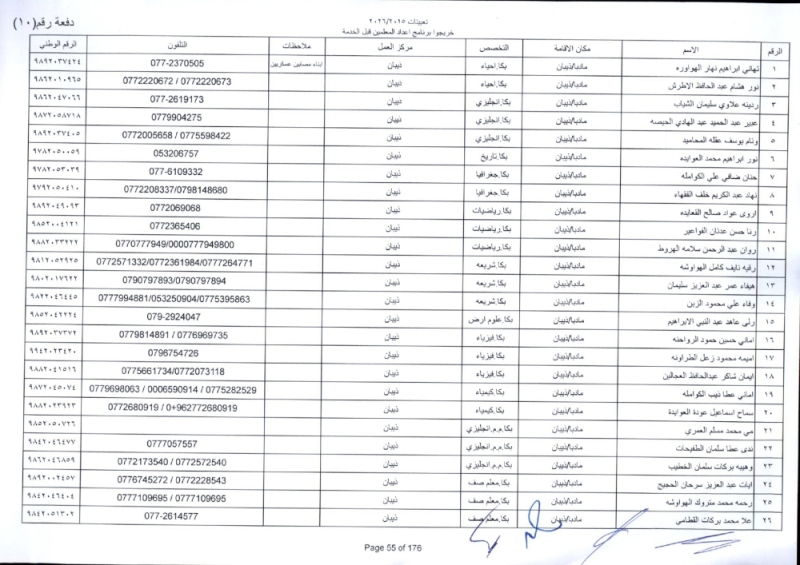 تعيينات ٢٠٢٦/٢٠٢٥
دفعة رقم(١٠)
خريجوا برنامج اعداد المعلمين قبل الخدمة
الرقم الاسم مكان الاقامة التخصص مركز العمل ملاحظات التلفون الرقم الوطني
١ تهاني ابراهيم نهار الهواوره مادبا/ذيبان بكا.احياء ذيبان ابناء مصابين عسكريين 077-2370505 ٩٨٩٢٠٣٧٤٢٤
٢ نور هشام عبد الحافظ الاطرش مادبا/ذيبان بكا.احياء ذيبان 0772220672 / 0772220673 ٩٨٦٢٠١٠٩٦٥
٣ ردينه علاوي سليمان الشياب مادبا/ذيبان بكا.انجليزي ذيبان 077-2619173 ٩٨٦٢٠٤٧٠٦٦
٤ عبير عبد الحميد عبد الهادي الحيصه مادبا/ذيبان بكا.انجليزي ذيبان 0779904275 ٩٨٧٢٠٥٨٧١٨
٥ وئام يوسف عقله المحاميد مادبا/ذيبان بكا.انجليزي ذيبان 0772005658 / 0775598422 ٩٨٩٢٠٣٧٤٠٥
٦ نور ابراهيم محمد العوايده مادبا/ذيبان بكا.تاريخ ذيبان 053206757 ٩٧٨٢٠٥٠٠٥٩
٧ حنان ضافي علي الكوامله مادبا/ذيبان بكا.جغرافيا ذيبان 077-6109332 ٩٧٨٢٠٥٣٠٣٩
٨ نهاد عبد الكريم خلف الفقهاء مادبا/ذيبان بكا.جغرافيا ذيبان 0772208337/0798148680 ٩٧٩٢٠٥٠٤١٠
٩ اروى عواد صالح القعايده مادبا/ذيبان بكا.رياضيات ذيبان 0772069068 ٩٨٩٢٠٤٩٠٩٣
١٠ رنا حسن عدنان الفواعير مادبا/ذيبان بكا.رياضيات ذيبان 0772365406 ٩٨٥٢٠٠٤١٢١
١١ روان عبد الرحمن سلامه الهروط مادبا/ذيبان بكا.رياضيات ذيبان 0770777949/0000777949800 ٩٨٨٢٠٣٣٢٢٧
١٢ رقيه نايف كامل الهواوشه مادبا/ذيبان بكا.شريعه ذيبان 0772571332/0772361984/0777264771 ٩٨١٢٠٥٢٩٢٥
١٣ هيفاء عمر عبد العزيز سليمان مادبا/ذيبان بكا.شريعه ذيبان 0790797893/0790797894 ٩٨٠٢٠١٧٦٢٢
١٤ وفاء علي محمود الزبن مادبا/ذيبان بكا.شريعه ذيبان 0777994881/053250904/0775395863 ٩٨٢٢٠٤٦٤٤٥
١٥ رلى عاهد عبد النبي الابراهيم مادبا/ذيبان بكا.علوم ارض ذيبان 079-2924047 ٩٨٥٢٠٤٢٢٢٤
١٦ اماني حسين حمود الرواحنه مادبا/ذيبان بكا.فيزياء ذيبان 0779814891 / 0776969735 ٩٨٩٢٠٣٧٣٧٢
١٧ اميمه محمود زعل الطراونه مادبا/ذيبان بكا.فيزياء ذيبان 0796754726 ٩٩٤٢٠٢٣٤٢٠
١٨ ايمان شاكر عبدالحافظ العجالين مادبا/ذيبان بكا.فيزياء ذيبان 0775661734/0772073118 ٩٨٨٢٠٤١٥١٦
١٩ اماني عطا ذيب الكوامله مادبا/ذيبان بكا.كيمياء ذيبان 0779698063 / 0006590914 / 0775282529 ٩٨٧٢٠٤٥٠٧٤
٢٠ سماح اسماعيل عودة العوايدة مادبا/ذيبان بكا.كيمياء ذيبان 0772680919 / 0+962772680919 ٩٨٨٢٠٢٣٩٢٣
٢١ مي محمد مسلم العمري مادبا/ذيبان بكا.م.م.انجليزي ذيبان ٩٨٥٢٠٥٠٧٢٦
٢٢ ندى عطا سلمان الطفيحات مادبا/ذيبان بكا.م.م.انجليزي ذيبان 0777057557 ٩٨٤٢٠٤٦٤٧٧
٢٣ وهيبه بركات سلمان الخطيب مادبا/ذيبان بكا.م.م.انجليزي ذيبان 0772173540 / 0772572540 ٩٨٦٢٠٤٦٨٥٩
٢٤ ايات عبد العزيز سرحان الحجيج مادبا/ذيبان بكا.معلم صف ذيبان 0776745272 / 0772228543 ٩٨٩٢٠٠٢٤٥٧
٢٥ رحمه محمد متروك الهواوشه مادبا/ذيبان بكا.معلم صف ذيبان 0777109695 / 0777109695 ٩٨٤٢٠٤٦٤٠٤
٢٦ علا محمد بركات القطامي مادبا/ذيبان بكا.معلم صف ذيبان 077-2614577 ٩٨٤٢٠٥١٣٠٢
Page 55 of 176